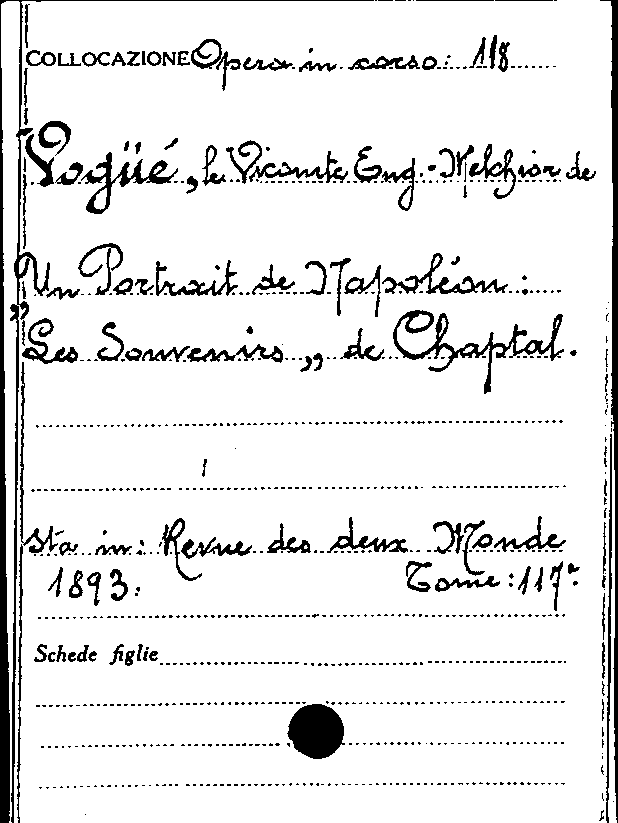 COLLOCAZIONE Opera in corso: 118
Vogüé, le Vicomte Eug.-Melchior de
Un Portrait de Napoléon:
„Les Souvenirs„ de Chaptal.
Sta in: Revue des deux Monde
1893. Tome: 117°.
Schede figlie